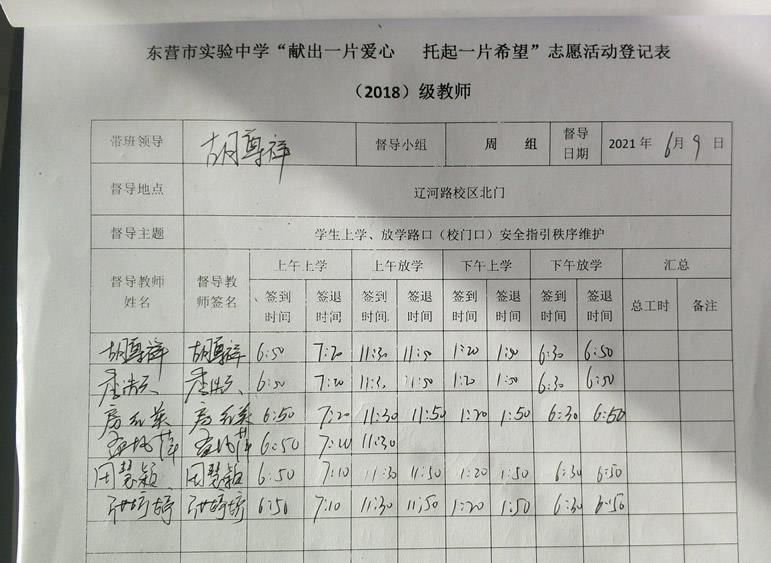 东营市实验中学“献出一片爱心 托起一片希望”志愿活动登记表
（2018）级教师
带班领导 胡尊祥 督导小组 周 组 督导日期 2021 年 6月 9 日
督导地点 辽河路校区北门
督导主题 学生上学、放学路口（校门口）安全指引秩序维护
督导教师姓名 督导教师签名 上午上学 上午放学 下午上学 下午放学 汇总
签到时间 签退时间 签到时间 签退时间 签到时间 签退时间 签到时间 签退时间 总工时 备注
胡尊祥 胡尊祥 6:50 7:20 11:30 11:50 1:20 1:50 6:30 6:50
6:50 7:20 11:30 11:50 1:20 1:50 6:30 6:50
6:50 7:20 11:30 11:50 1:20 1:50 6:30 6:50
6:50 11:30
田慧颖 田慧颖 6:50 7:10 11:30 11:50 1:20 1:50 6:30 6:50
张婷婷 张婷婷 6:50 7:10 11:30 11:50 1:20 1:50 6:30 6:50